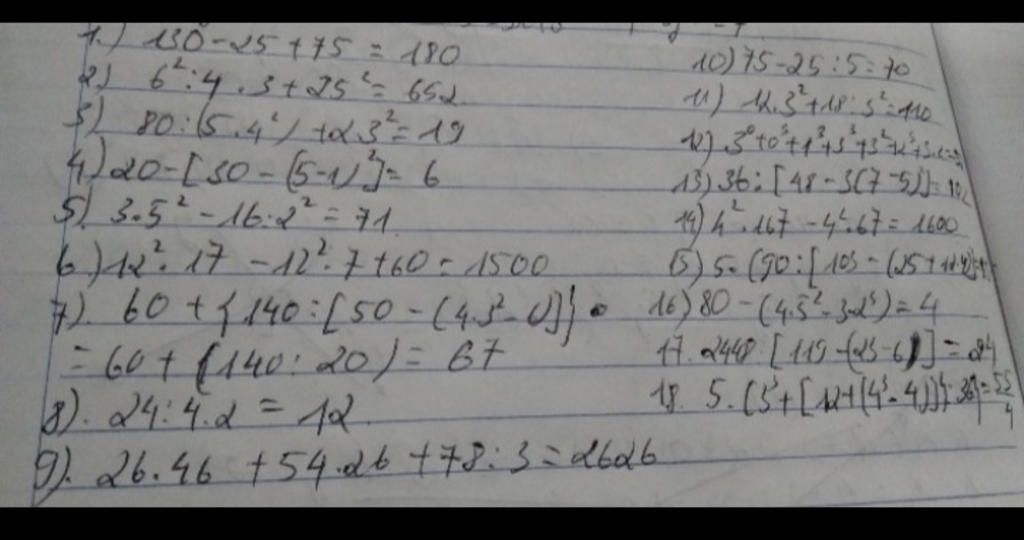 1.) 130-25+75 = 180
2.) 6²:4.3+25² = 652
3) 80:(5.4²)+2.3²=19
4.) 20-[30-(5-1)²]= 6
5). 3.5² - 16:2² = 71
6.) 12².17 - 12².7+60 = 1500
7). 60 + {140:[50 - (4.3²-
= 60 + (140:20) = 67
8). 24:4.2 = 12
9). 26.46 + 54.26 + 78:3 = 2626
10) 75-25:5=70
11) 12.3²+18:3²=110
12)
13) 36:[48-3(7-5)]=
14) 4².167 - 4².67 = 1600
15) 5.(90:[103-(25+
16) 80-(4.5²-3.2³) = 4
17. 2448:[119-(23-6)] = 24
18. 5.{3³+[12+(4³-4)]